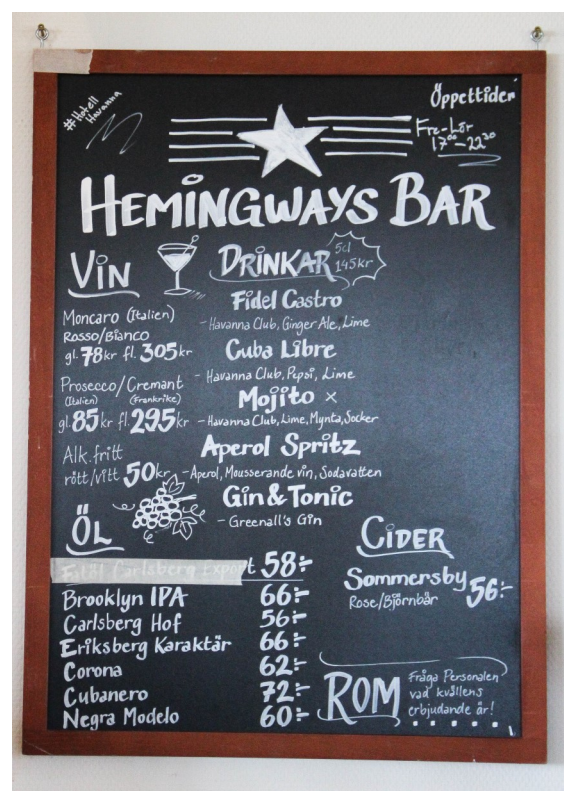 #Hotell
Havanna
Öppettider
Fre-Lör
17⁰⁰-22³⁰
HEMINGWAYS BAR
VIN
Moncaro (Italien)
Rosso/Bianco
gl. 78kr fl. 305kr
Prosecco/Cremant
(Italien) (Frankrike)
gl. 85kr fl. 295kr
Alk.fritt
rött/vitt 50kr
DRINKAR
5cl
145kr
Fidel Castro
- Havanna Club, Ginger Ale, Lime
Cuba Libre
- Havanna Club, Pepsi, Lime
Mojito x
- Havanna Club, Lime, Mynta, Socker
Aperol Spritz
- Aperol, Mousserande vin, Sodavatten
Gin & Tonic
- Greenall's Gin
ÖL
Fatöl Carlsberg Export 58:-
Brooklyn IPA 66:-
Carlsberg Hof 56:-
Eriksberg Karaktär 66:-
Corona 62:-
Cubanero 72:-
Negra Modelo 60:-
CIDER
Sommersby 56:-
Rose/Björnbär
ROM
Fråga Personalen
vad kvällens
erbjudande är!